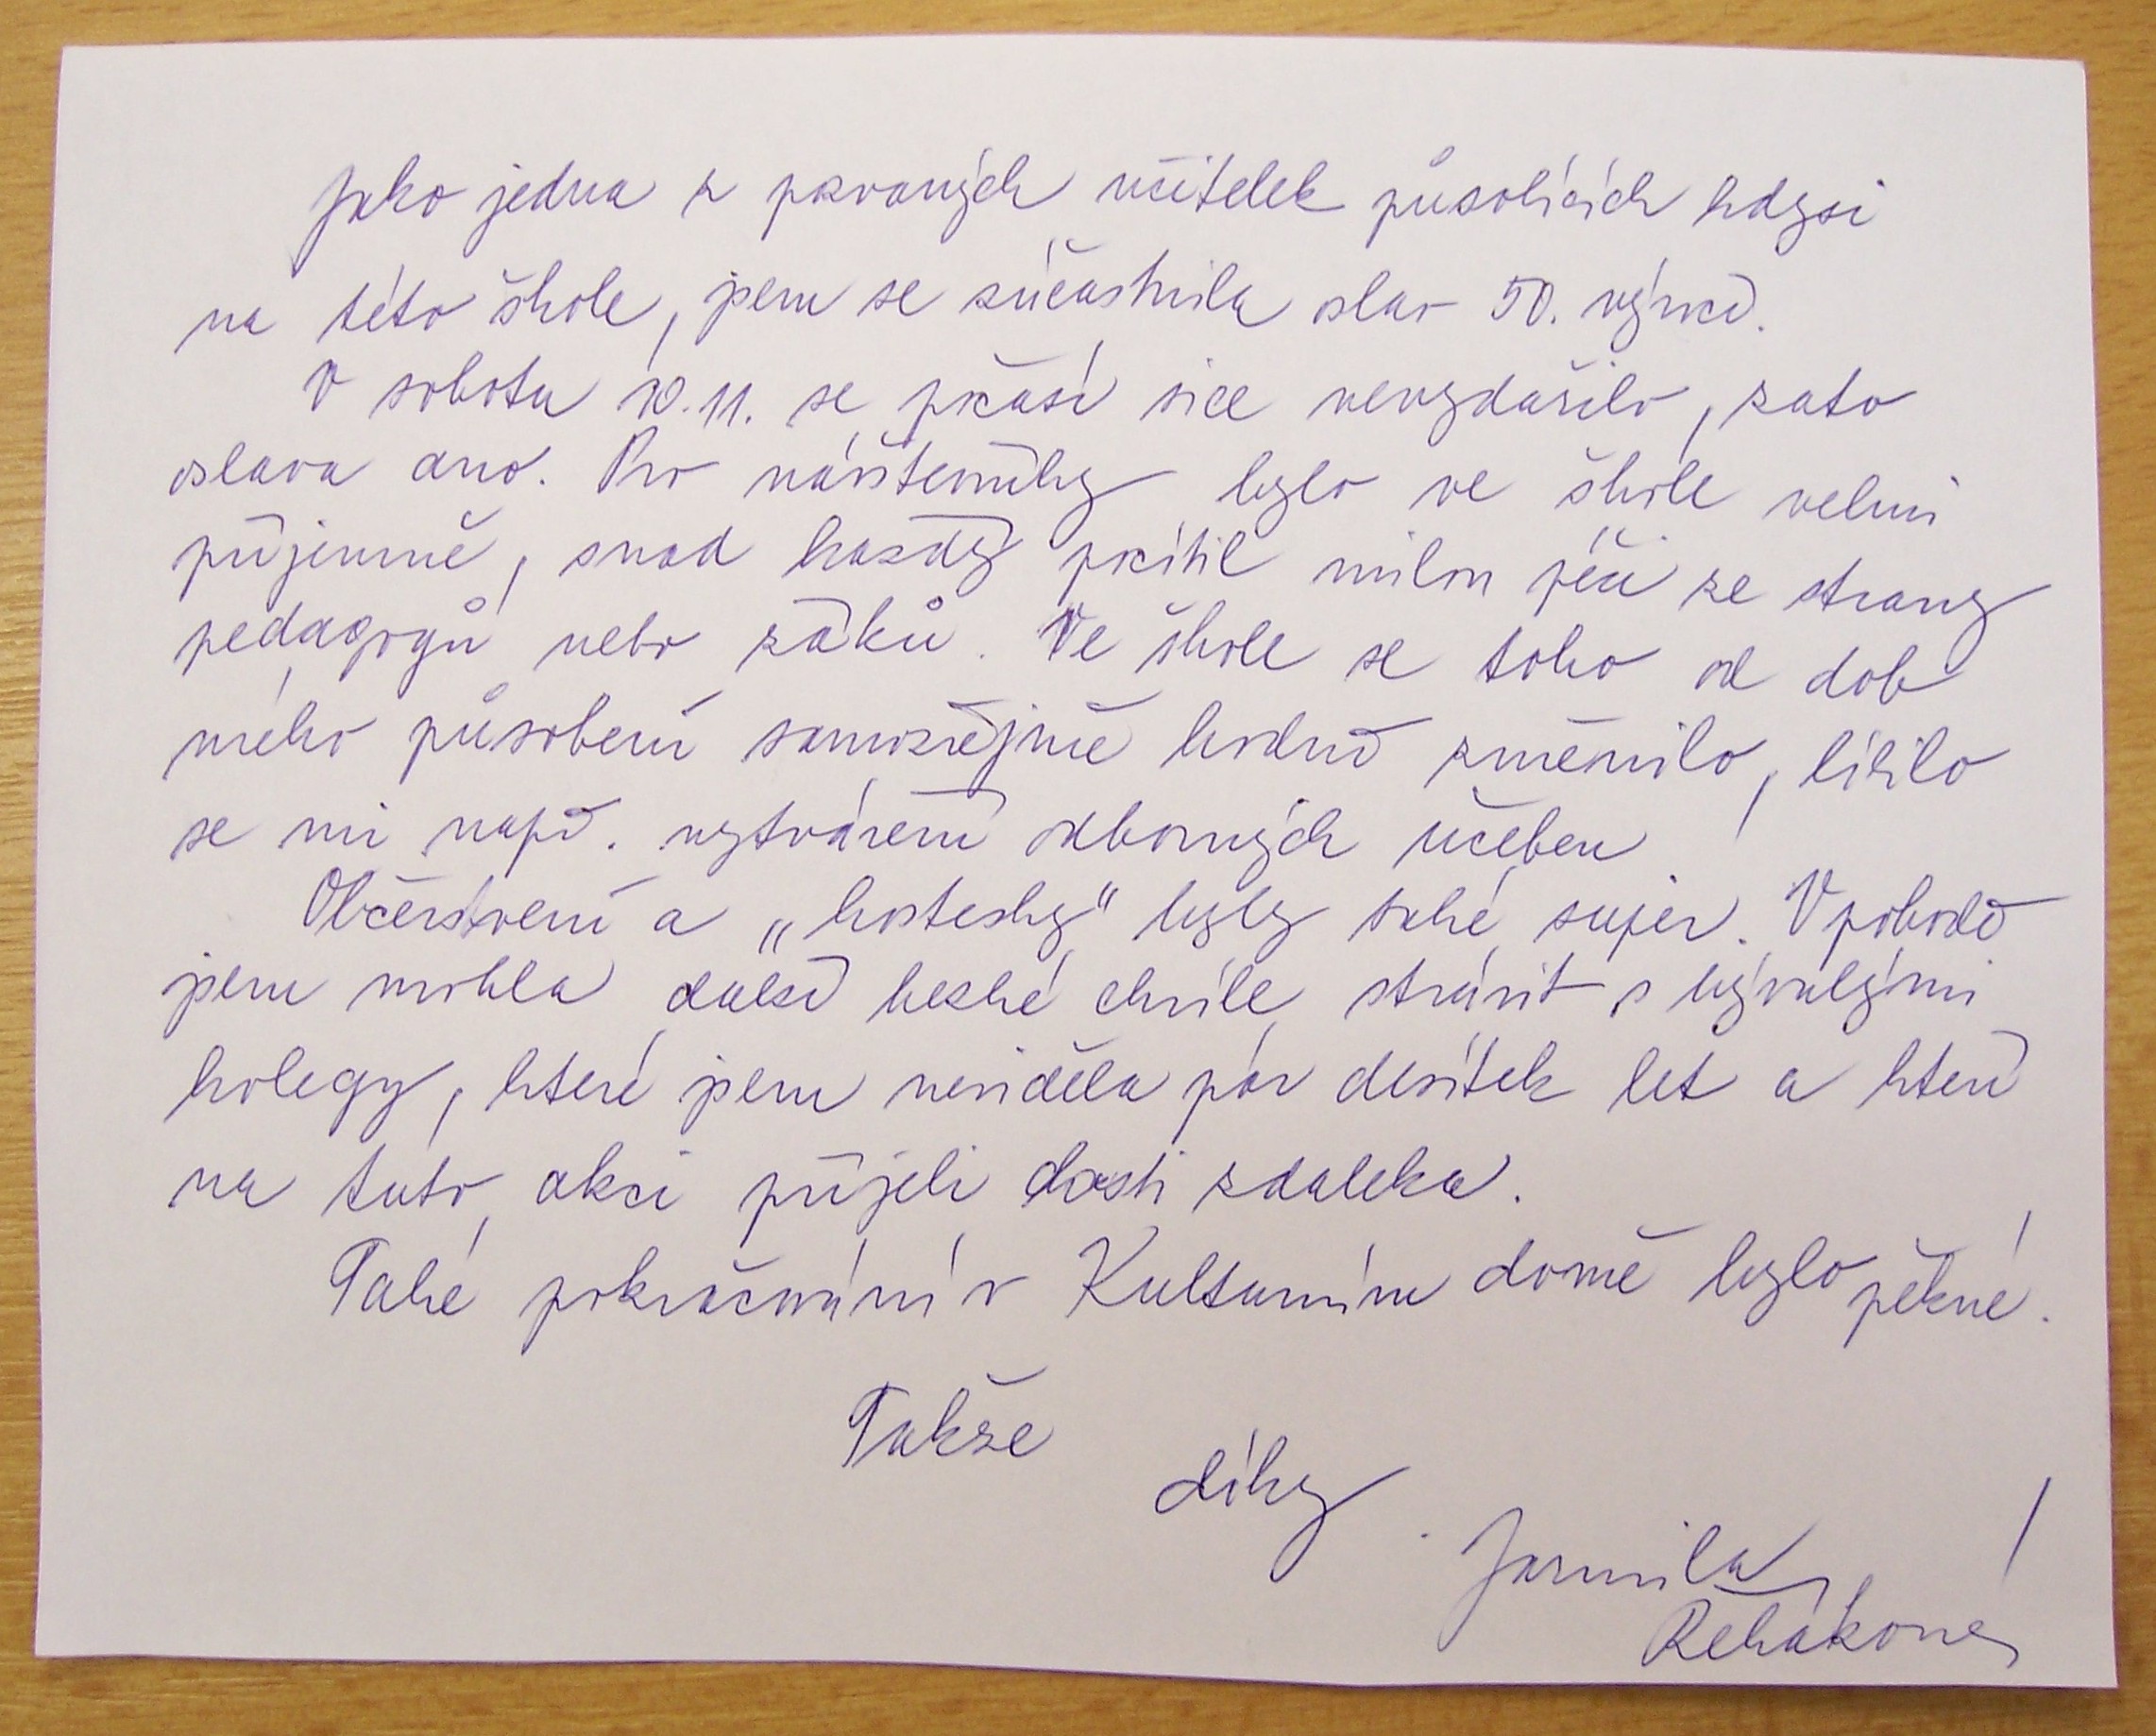 Jako jedna z pozvaných učitelek působících kdysi
na této škole, jsem se zúčastnila oslav 50. výročí.
V sobotu 10.11. se počasí sice nevydařilo, zato
oslava ano. Pro návštevníky bylo ve škole velmi
příjemně, snad každý pocítil milou péči ze strany
pedagogů nebo žáků. Ve škole se toho od dob
mého působení samozřejmě hodně změnilo, líbilo
se mi např. vytváření odborných učeben
Občerstvení a „hostesky" byly také super. V pohodě
jsem mohla další hezké chvíle strávit s bývalými
kolegy, které jsem neviděla pár desítek let a kteří
na tuto akci přijeli dosti zdaleka.
Také pokračování v Kulturním domě bylo pěkné.
Takže
díky
Jarmila
Řeháková